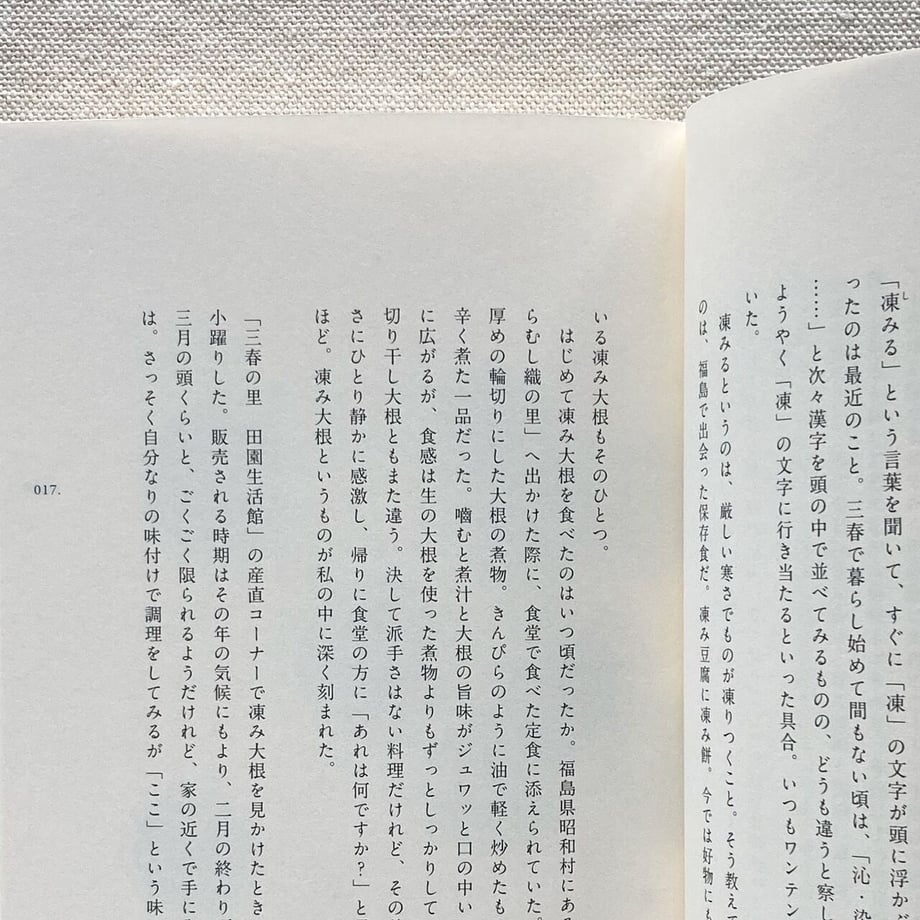 「凍みる」という言葉を聞いて、すぐに「凍」の文字が頭に浮か
ったのは最近のこと。三春で暮らし始めて間もない頃は、「沁・染
……」と次々漢字を頭の中で並べてみるものの、どうも違うと察し
ようやく「凍」の文字に行き当たるといった具合。いつもワンテン
いた。
凍みるというのは、厳しい寒さでものが凍りつくこと。そう教え
のは、福島で出会った保存食だ。凍み豆腐に凍み餅。今では好物にも
いる凍み大根もそのひとつ。
はじめて凍み大根を食べたのはいつ頃だったか。福島県昭和村にある
らむし織の里」へ出かけた際に、食堂で食べた定食に添えられていた。
厚めの輪切りにした大根の煮物。きんぴらのように油で軽く炒めたも
辛く煮た一品だった。嚙むと煮汁と大根の旨味がジュワッと口の中い
に広がるが、食感は生の大根を使った煮物よりもずっとしっかりして
切り干し大根ともまた違う。決して派手さはない料理だけれど、その
さにひとり静かに感激し、帰りに食堂の方に「あれは何ですか？」と
ほど。凍み大根というものが私の中に深く刻まれた。
「三春の里　田園生活館」の産直コーナーで凍み大根を見かけたとき
小躍りした。販売される時期はその年の気候にもより、二月の終わり
三月の頭くらいと、ごくごく限られるようだけれど、家の近くで手に
は。さっそく自分なりの味付けで調理をしてみるが「ここ」という味
017.